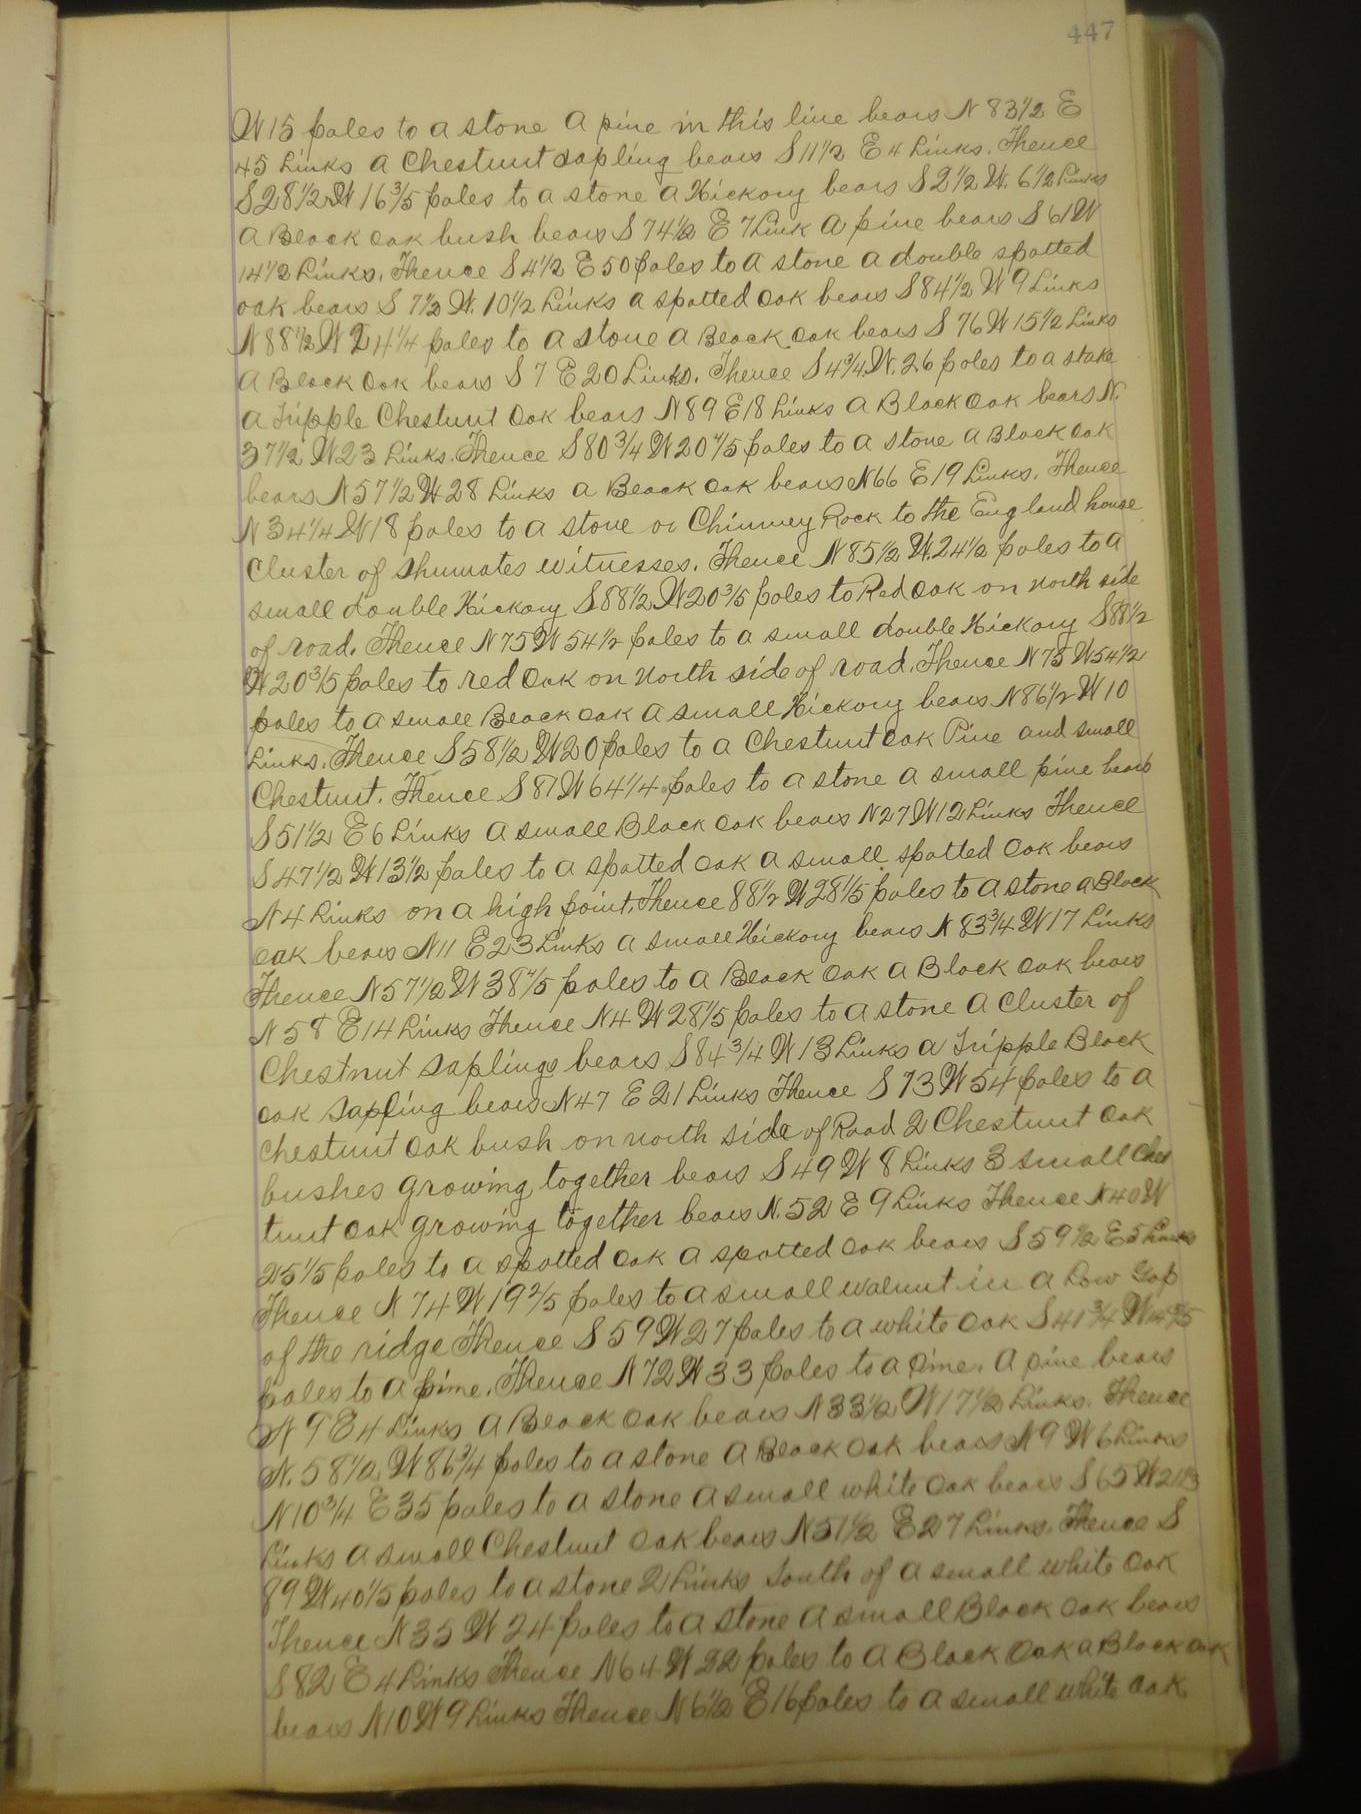 447
W 15 poles to a stone A pine in this line bears N 83 1/2 E
45 Links a Chestnut sapling bears S 11 1/2 E 4 Links. Thence
S 28 1/2 W 16 3/5 poles to a stone a Hickory bears S 2 1/2 W. 6 1/2 Links
a Black oak bush bears S 74 1/2 E 7 Link a pine bears S 61 W
14 1/2 Links. Thence S 4 1/2 E 50 poles to a stone a double spotted
oak bears S 7 1/2 W. 10 1/2 Links a spotted oak bears S 84 1/2 W 9 Links
N 88 1/2 W 24 1/4 poles to a stone a Black oak bears S 76 W 15 1/2 Links
a Black oak bears S 7 E 20 Links. Thence S 4 3/4 W. 26 poles to a stake
a Tripple Chestnut Oak bears N 89 E 18 Links a Black oak bears N.
37 1/2 W 23 Links. Thence S 80 3/4 W 20 4/5 poles to a stone a Black oak
bears N 57 1/2 W 28 Links a Black oak bears N 66 E 19 Links. Thence
N 34 1/4 W 18 poles to a stone or Chimney Rock to the England house
Cluster of Shumates witnesses. Thence N 85 1/2 W. 24 1/2 poles to a
small double Hickory S 88 1/2 W 20 3/5 poles to Red oak on north side
of road. Thence N 75 W 54 1/2 poles to a small double Hickory S 88 1/2
W 20 3/5 poles to red oak on north side of road. Thence N 75 W 54 1/2
poles to a small Black oak a small Hickory bears N 86 1/2 W 10
Links. Thence S 58 1/2 W 20 poles to a Chestnut oak Pine and small
Chestnut. Thence S 87 W 64 1/4 poles to a stone a small pine bears
S 51 1/2 E 6 Links a small Black oak bears N 27 W 12 Links Thence
S 47 1/2 W 13 1/2 poles to a spotted oak a small spotted oak bears
N 4 Links on a high point. Thence 88 1/2 W 28 1/5 poles to a stone a Black
oak bears N 11 E 23 Links a small Hickory bears N 83 3/4 W 17 Links
Thence N 57 1/2 W 38 4/5 poles to a Black oak a Black oak bears
N 58 E 14 Links Thence N 4 W 28 1/5 poles to a stone a Cluster of
Chestnut saplings bears S 84 3/4 W 13 Links a Tripple Black
oak sapling bears N 47 E 21 Links Thence S 73 W 54 poles to a
chestnut oak bush on north side of Road 2 Chestnut oak
bushes growing together bears S 49 W 8 Links 3 small Ches
tnut oak growing together bears N. 52 E 9 Links Thence N 40 W
25 1/5 poles to a spotted oak a spotted oak bears S 59 1/2 E 5 Links
Thence N 74 W 19 2/5 poles to a small walnut in a Low Gap
of the ridge Thence S 59 W 27 poles to a white oak S 41 3/4 W
poles to a pine. Thence N 72 W 33 poles to a pine. A pine bears
N 9 E 4 Links a Black oak bears N 33 1/2 W 17 1/2 Links. Thence
N. 58 1/2 W 86 3/4 poles to a stone a Black oak bears N 9 W 6 Links
N 10 3/4 E 35 poles to a stone a small white oak bears S 65 W
Links a small Chestnut oak bears N 51 1/2 E 27 Links. Thence S
89 W 40 1/5 poles to a stone 2 Links south of a small white oak
Thence N 35 W 24 poles to a stone a small Black oak bears
S 82 E 4 Links Thence N 64 W 22 poles to a Black oak a Black oak
bears N 10 W 9 Links Thence N 6 1/2 E 16 poles to a small white oak